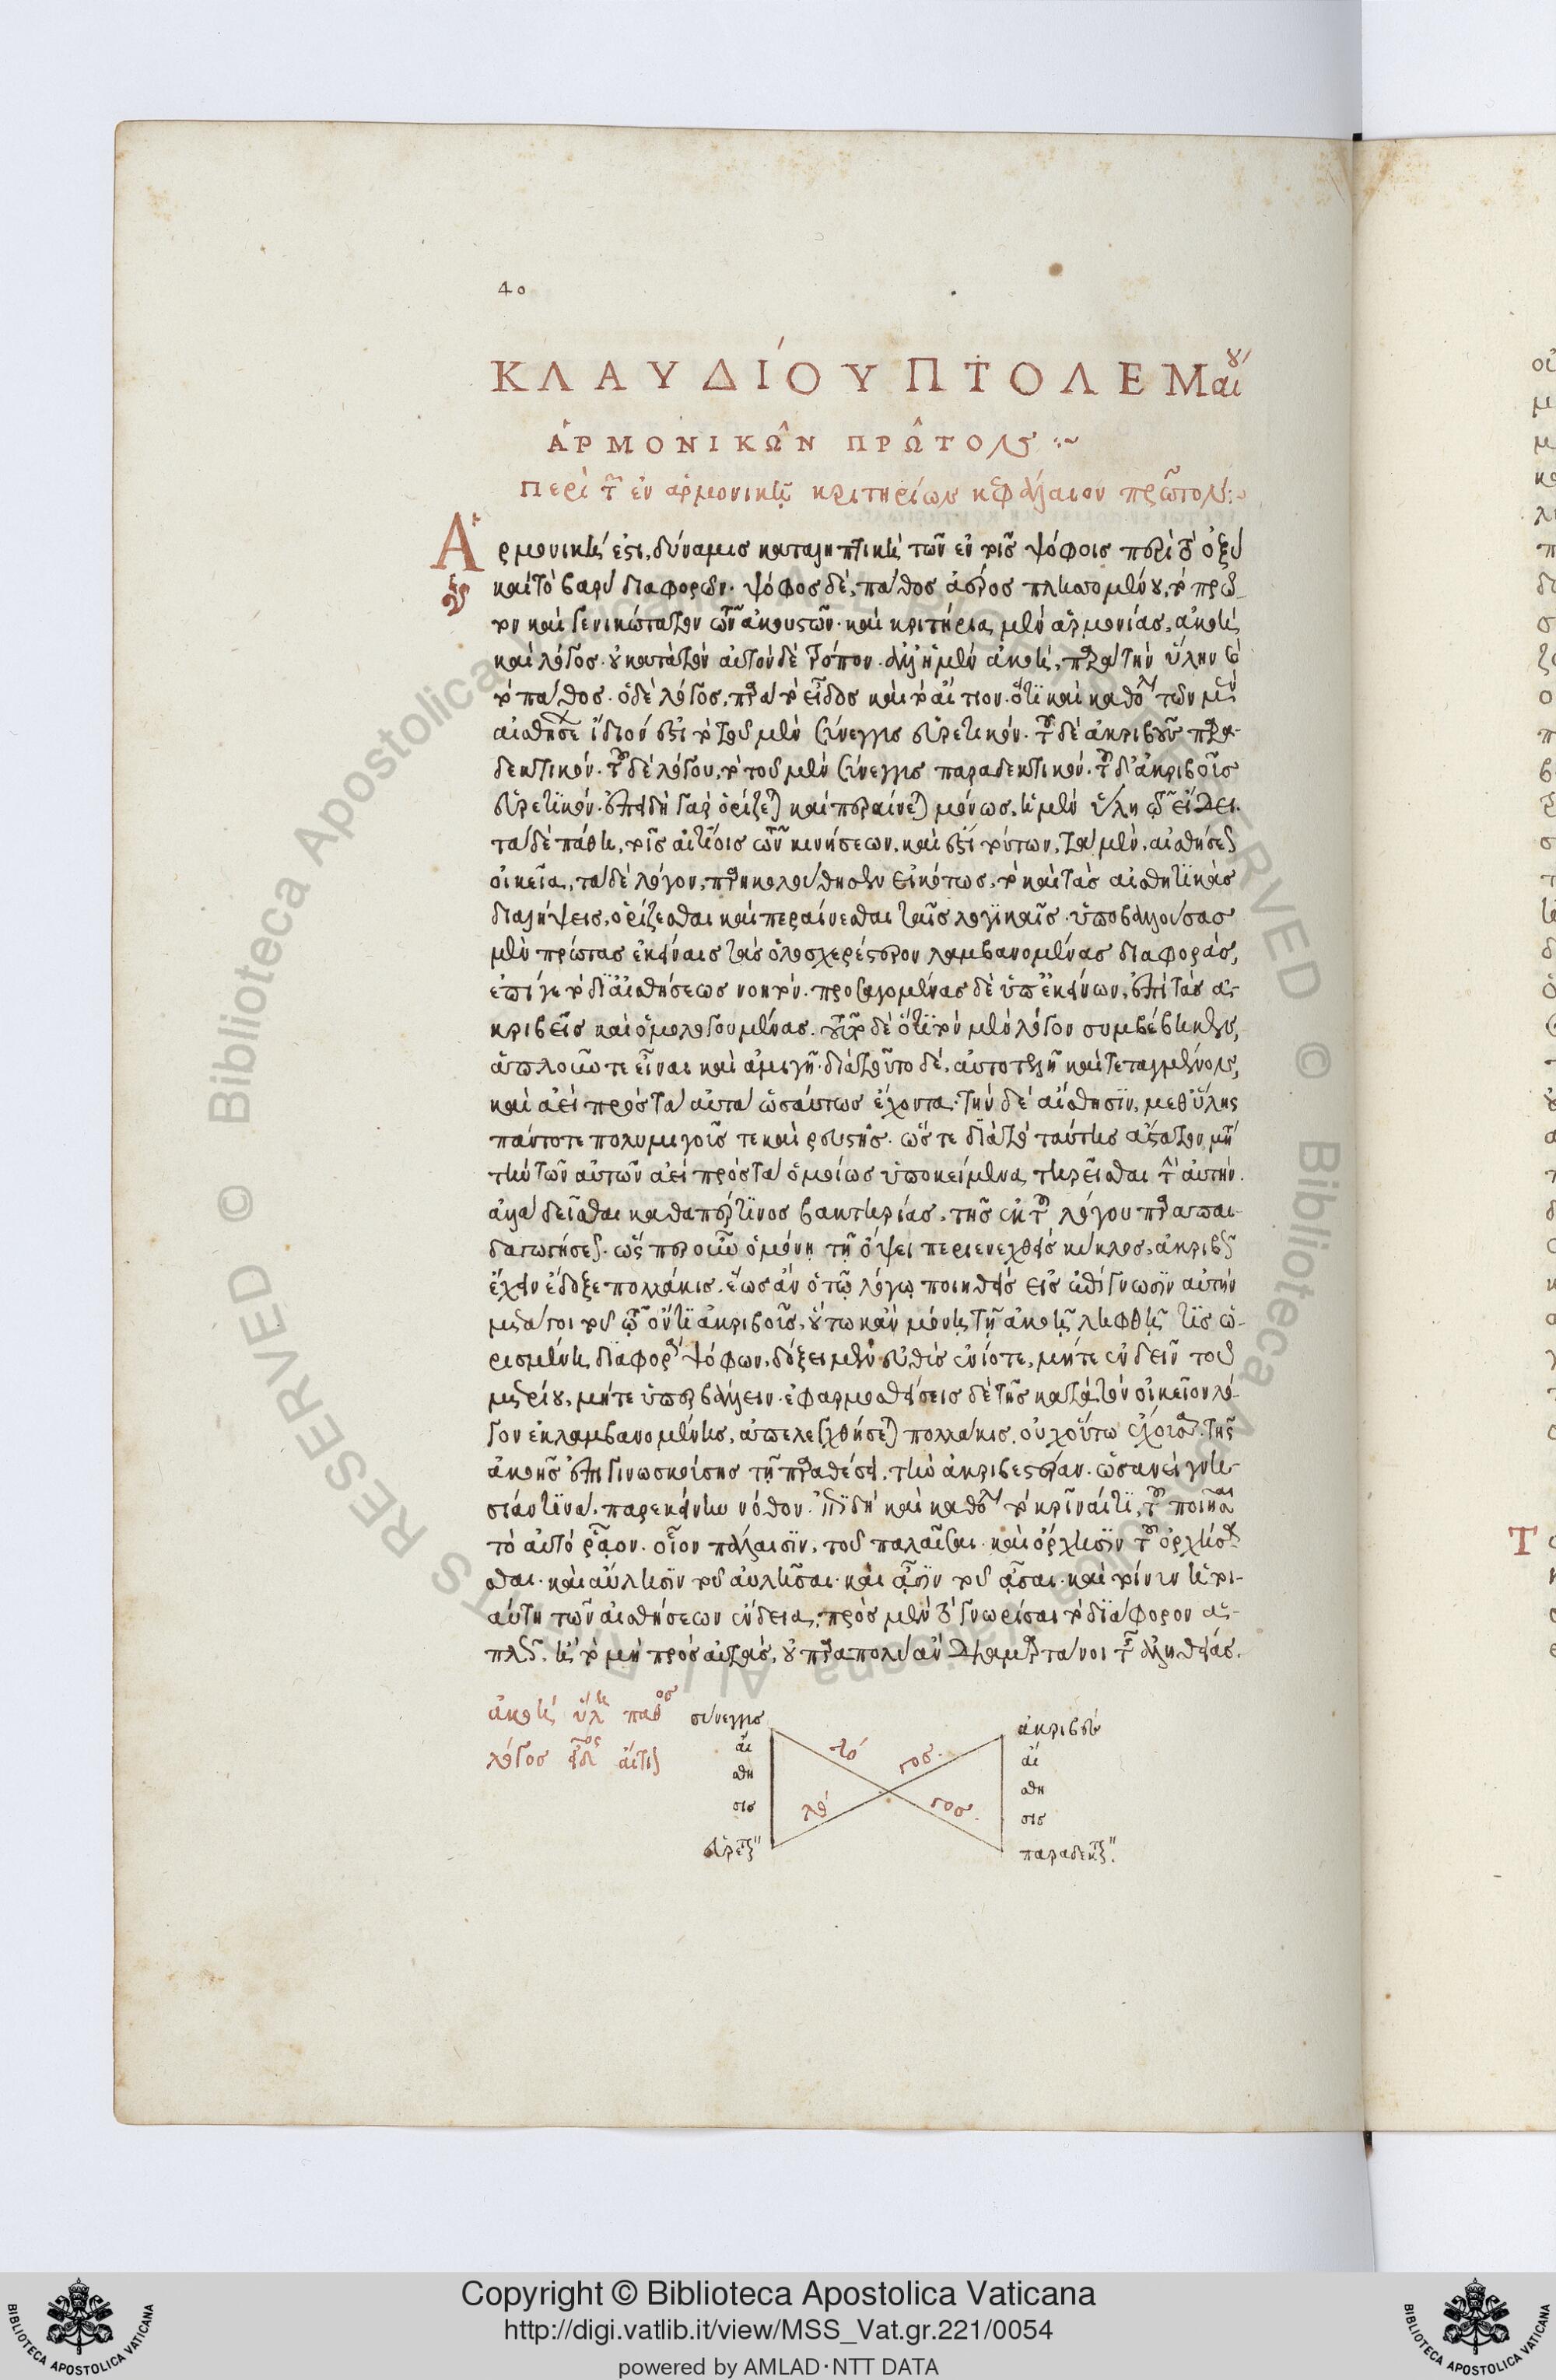 40
ΚΛΑΥΔΙΟΥ ΠΤΟΛΕΜαίου
ἉΡΜΟΝΙΚΩΝ ΠΡΩΤΟΝ :~
Περὶ τῶν ἐν ἁρμονικῇ κριτηρίων κεφάλαιον πρῶτον:~
Ἁρμονική ἐστι, δύναμις καταληπτικὴ τῶν ἐν τοῖς ψόφοις περὶ τὸ ὀξὺ
καὶ τὸ βαρὺ διαφορῶν. ψόφος δὲ, πάθος ἀέρος πλησσομένου, τὸ πρῶ-
τον καὶ γενικώτατον τῶν ἀκουστῶν. καὶ κριτήρια μὲν ἁρμονίας, ἀκοὴ
καὶ λόγος. οὐ κατὰ τὸν αὐτὸν δὲ τρόπον. ἀλλ' ἡ μὲν ἀκοὴ, παρὰ τὴν ὕλην καὶ
τὸ πάθος. ὁ δὲ λόγος, παρὰ τὸ εἶδος καὶ τὸ αἴτιον. ὅτι καὶ καθόλου τῶν μὲν
αἰσθήσεων ἴδιόν ἐστι τὸ τοῦ μὲν σύνεγγυς εὑρετικόν. τοῦ δὲ ἀκριβοῦς παρα-
δεκτικόν. τοῦ δὲ λόγου, τὸ τοῦ μὲν σύνεγγυς παραδεκτικόν. τοῦ δ' ἀκριβοῦς
εὑρετικόν. ἐπειδὴ γὰρ ὁρίζεται καὶ περαίνεται μόνως, ἡ μὲν ὕλη τῷ εἴδει.
τὰ δὲ πάθη, τοῖς αἰτίοις τῶν κινήσεων. καὶ ἔστι τούτων, τὰ μὲν, αἰσθήσεως
οἰκεῖα, τὰ δὲ λόγου, παρηκολούθησεν εἰκότως, τὸ καὶ τὰς αἰσθητικὰς
διαλήψεις, ὁρίζεσθαι καὶ περαίνεσθαι ταῖς λογικαῖς. ὑποβαλλούσας
μὲν πρώτας ἐκείναις τὰς ὁλοσχερέστερον λαμβανομένας διαφορὰς,
ἐπί γε τῶν δι' αἰσθήσεως νοητῶν. προσαγομένας δὲ ὑπ' ἐκείνων, ἐπὶ τὰς ἀ-
κριβεῖς καὶ ὁμολογουμένας. τοῦτο δὲ ὅτι τὸν μὲν λόγον συμβέβηκεν,
ἁπλοῦν τε εἶναι καὶ ἀμιγῆ. διὰ τοῦτο δὲ, αὐτοτελῆ καὶ τεταγμένον,
καὶ ἀεὶ πρὸς τὰ αὐτὰ ὡσαύτως ἔχοντα. τὴν δὲ αἴσθησιν, μεθ' ὕλης
πάντοτε πολυμιγοῦς τε καὶ ῥευστῆς. ὥστε διὰ τὸ ταύτης ἄστατον, μὴ
τὴν τῶν αὐτῶν ἀεὶ πρὸς τὰ ὁμοίως ὑποκείμενα τηρεῖσθαι τὴν αὐτήν.
ἀλλὰ δεῖσθαι καθάπερ τινος βακτηρίας, τῆς ἐκ τοῦ λόγου παραπαι-
δαγωγήσεως. ὥσπερ οὖν ὁ μόνῃ τῇ ὄψει περιενεχθεὶς κύκλος, ἀκριβῶς
ἔχειν ἔδοξε πολλάκις, ἕως ἂν ὁ τῷ λόγῳ ποιηθεὶς εἰς ἐπίγνωσιν αὐτὴν
μεταγάγοι τοῦ τῷ ὄντι ἀκριβοῦς, οὕτω κἂν μόνῃ τῇ ἀκοῇ ληφθῇ τις ὡ-
ρισμένη διαφορὰ ψόφων, δόξει μὲν εὐθὺς ἐνίοτε, μήτε ἐνδεῖν τοῦ
μετρίου, μήτε ὑπερβάλλειν. ἐφαρμοσθείσης δὲ τῆς κατὰ τὸν οἰκεῖον λό-
γον ἐκλαμβανομένης, ἀπελεγχθήσεται πολλάκις, οὐχ οὕτω ἔχουσα. τῆς
ἀκοῆς ἐπιγινωσκούσης τῇ παραθέσει, τὴν ἀκριβεστέραν. ὡσανεὶ γνη-
σίαν τινὰ. παρ' ἐκείνην νόθον. ἐπειδὴ καὶ καθόλου τὸ κρῖναί τι, τοῦ ποιῆσαι
τὸ αὐτὸ ῥᾷον. οἷον πάλαισιν, τοῦ παλαῖσαι. καὶ ὄρχησιν τοῦ ὀρχήσα-
σθαι. καὶ αὔλησιν τοῦ αὐλῆσαι. καὶ ᾆσιν τοῦ ᾆσαι. καὶ τοίνυν ἡ τοι-
αύτη τῶν αἰσθήσεων ἔνδεια, πρὸς μὲν τὸ γνωρίσαι τὸ διάφορον ἁ-
πλῶς. ἢ τὸ μὴ πρὸς αὑτὰς, οὐ παραπολὺ ἂν διαμαρτάνοι τῆς ἀληθείας.
ἀκοὴ ὕλη πάθος
λόγος εἶδος αἴτιον
σύνεγγυς
αἴ
σθη
σις
εὑρετικ
λό
γος.
λό
γος.
ἀκριβοῦς
αἴ
σθη
σις
παραδεκτικ.
Τ
Copyright © Biblioteca Apostolica Vaticana
http://digi.vatlib.it/view/MSS_Vat.gr.221/0054
powered by AMLAD·NTT DATA
BIBLIOTECA APOSTOLICA VATICANA
BIBLIOTECA APOSTOLICA VATICANA
© Biblioteca Apostolica Vaticana ALL RIGHTS RESERVED © Biblioteca Apostolica Vaticana ALL RIGHTS RESERVED